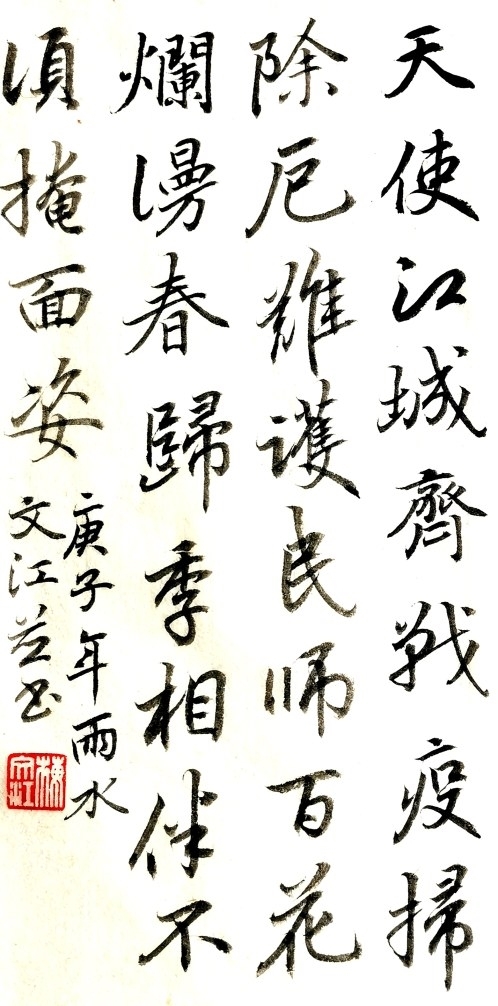 天使江城齊戰疫掃
除厄難護民师百花
爛漫春歸季相伴不
須掩面姿
庚子年雨水
文江並书